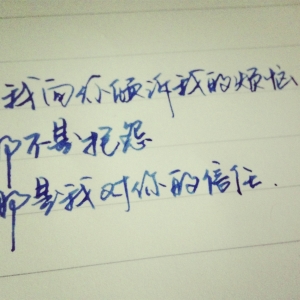 我向你倾诉我的烦恼
那不是抱怨
那是我对你的信任.